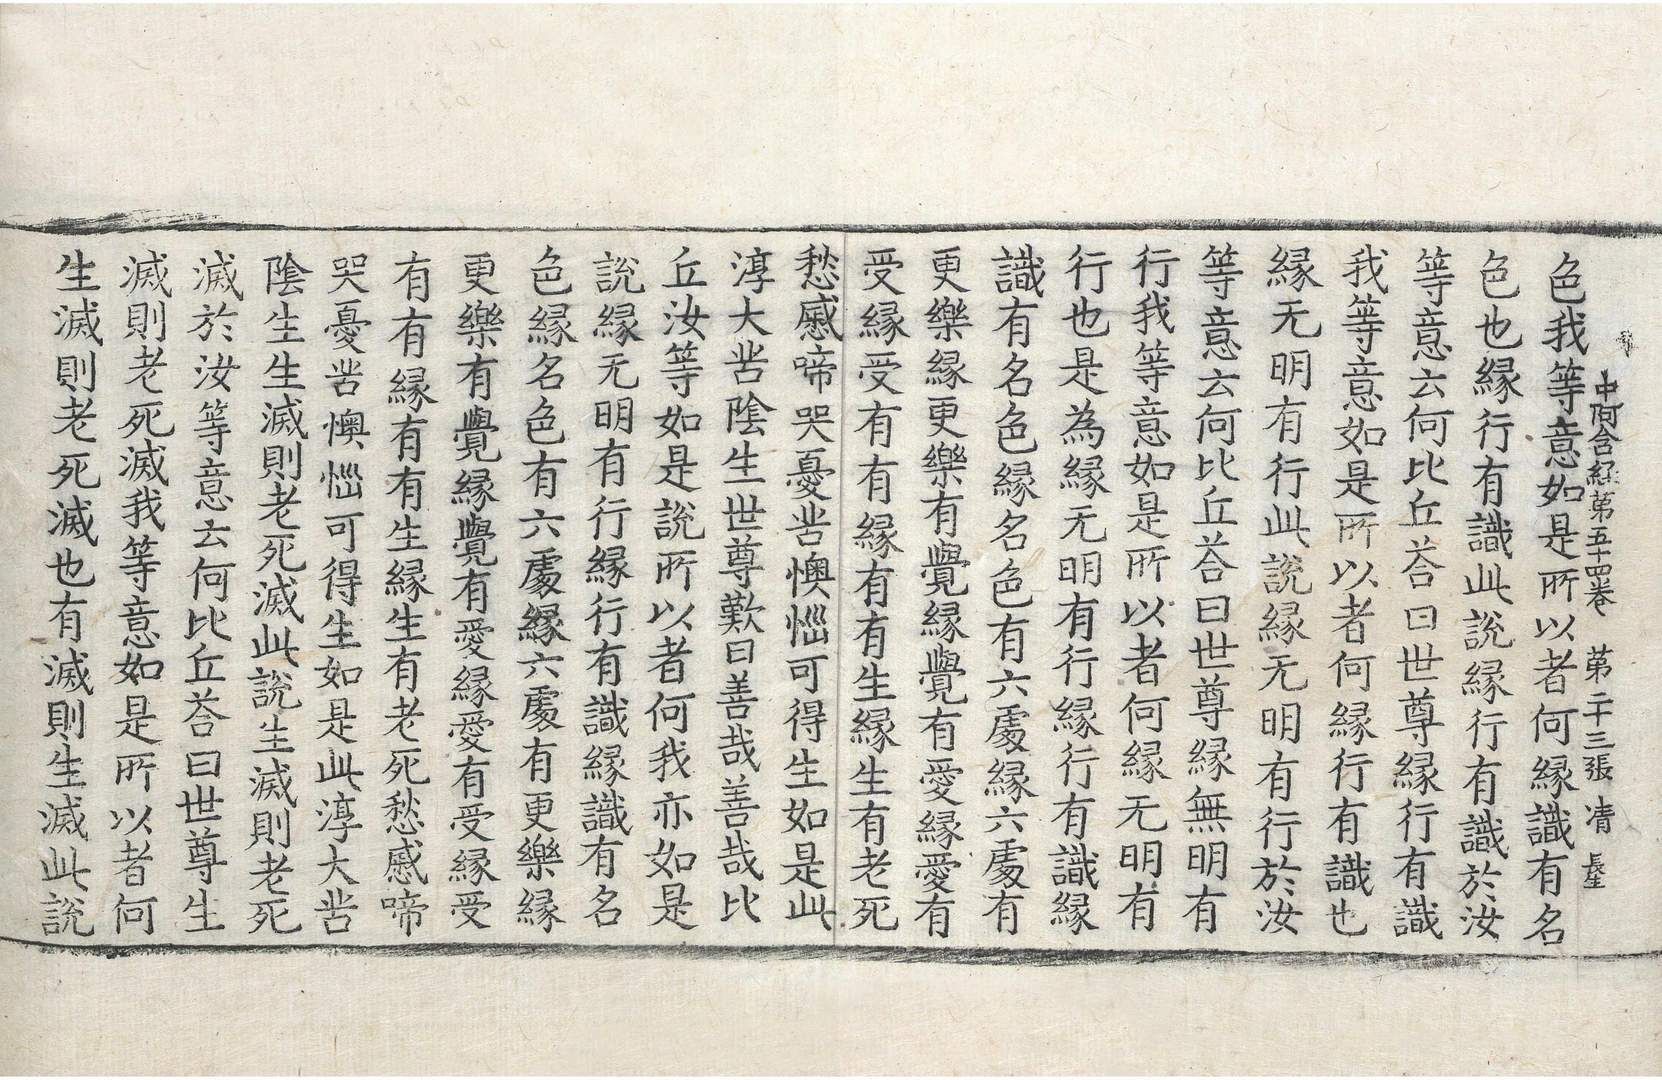 中阿含経第五十四卷 第二十三張 凊
色我等意如是所以者何縁識有名
色也縁行有識此說縁行有識於汝
等意云何比丘荅曰世尊縁行有識
我等意如是所以者何縁行有識也
縁无明有行此說縁无明有行於汝
等意云何比丘荅曰世尊縁無明有
行我等意如是所以者何縁无明有
行也是為縁无明有行縁行有識縁
識有名色縁名色有六處縁六處有
更樂縁更樂有覺縁覺有愛縁愛有
受縁受有有縁有有生縁生有老死
愁慼啼哭憂苦懊惱可得生如是此
淳大苦陰生世尊歎曰善哉善哉比
丘汝等如是說所以者何我亦如是
說縁无明有行縁行有識縁識有名
色縁名色有六處縁六處有更樂縁
更樂有覺縁覺有愛縁愛有受縁受
有有縁有有生縁生有老死愁慼啼
哭憂苦懊惱可得生如是此淳大苦
陰生生滅則老死滅此說生滅則老死
滅於汝等意云何比丘荅曰世尊生
滅則老死滅我等意如是所以者何
生滅則老死滅也有滅則生滅此說